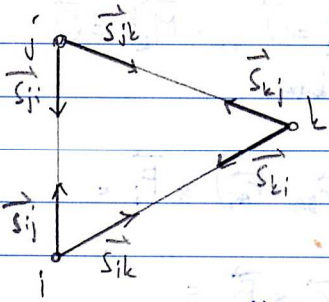 j
→S_jk
→S_ji
→S_kj
k
→S_ki
→S_ij
→S_ik
i